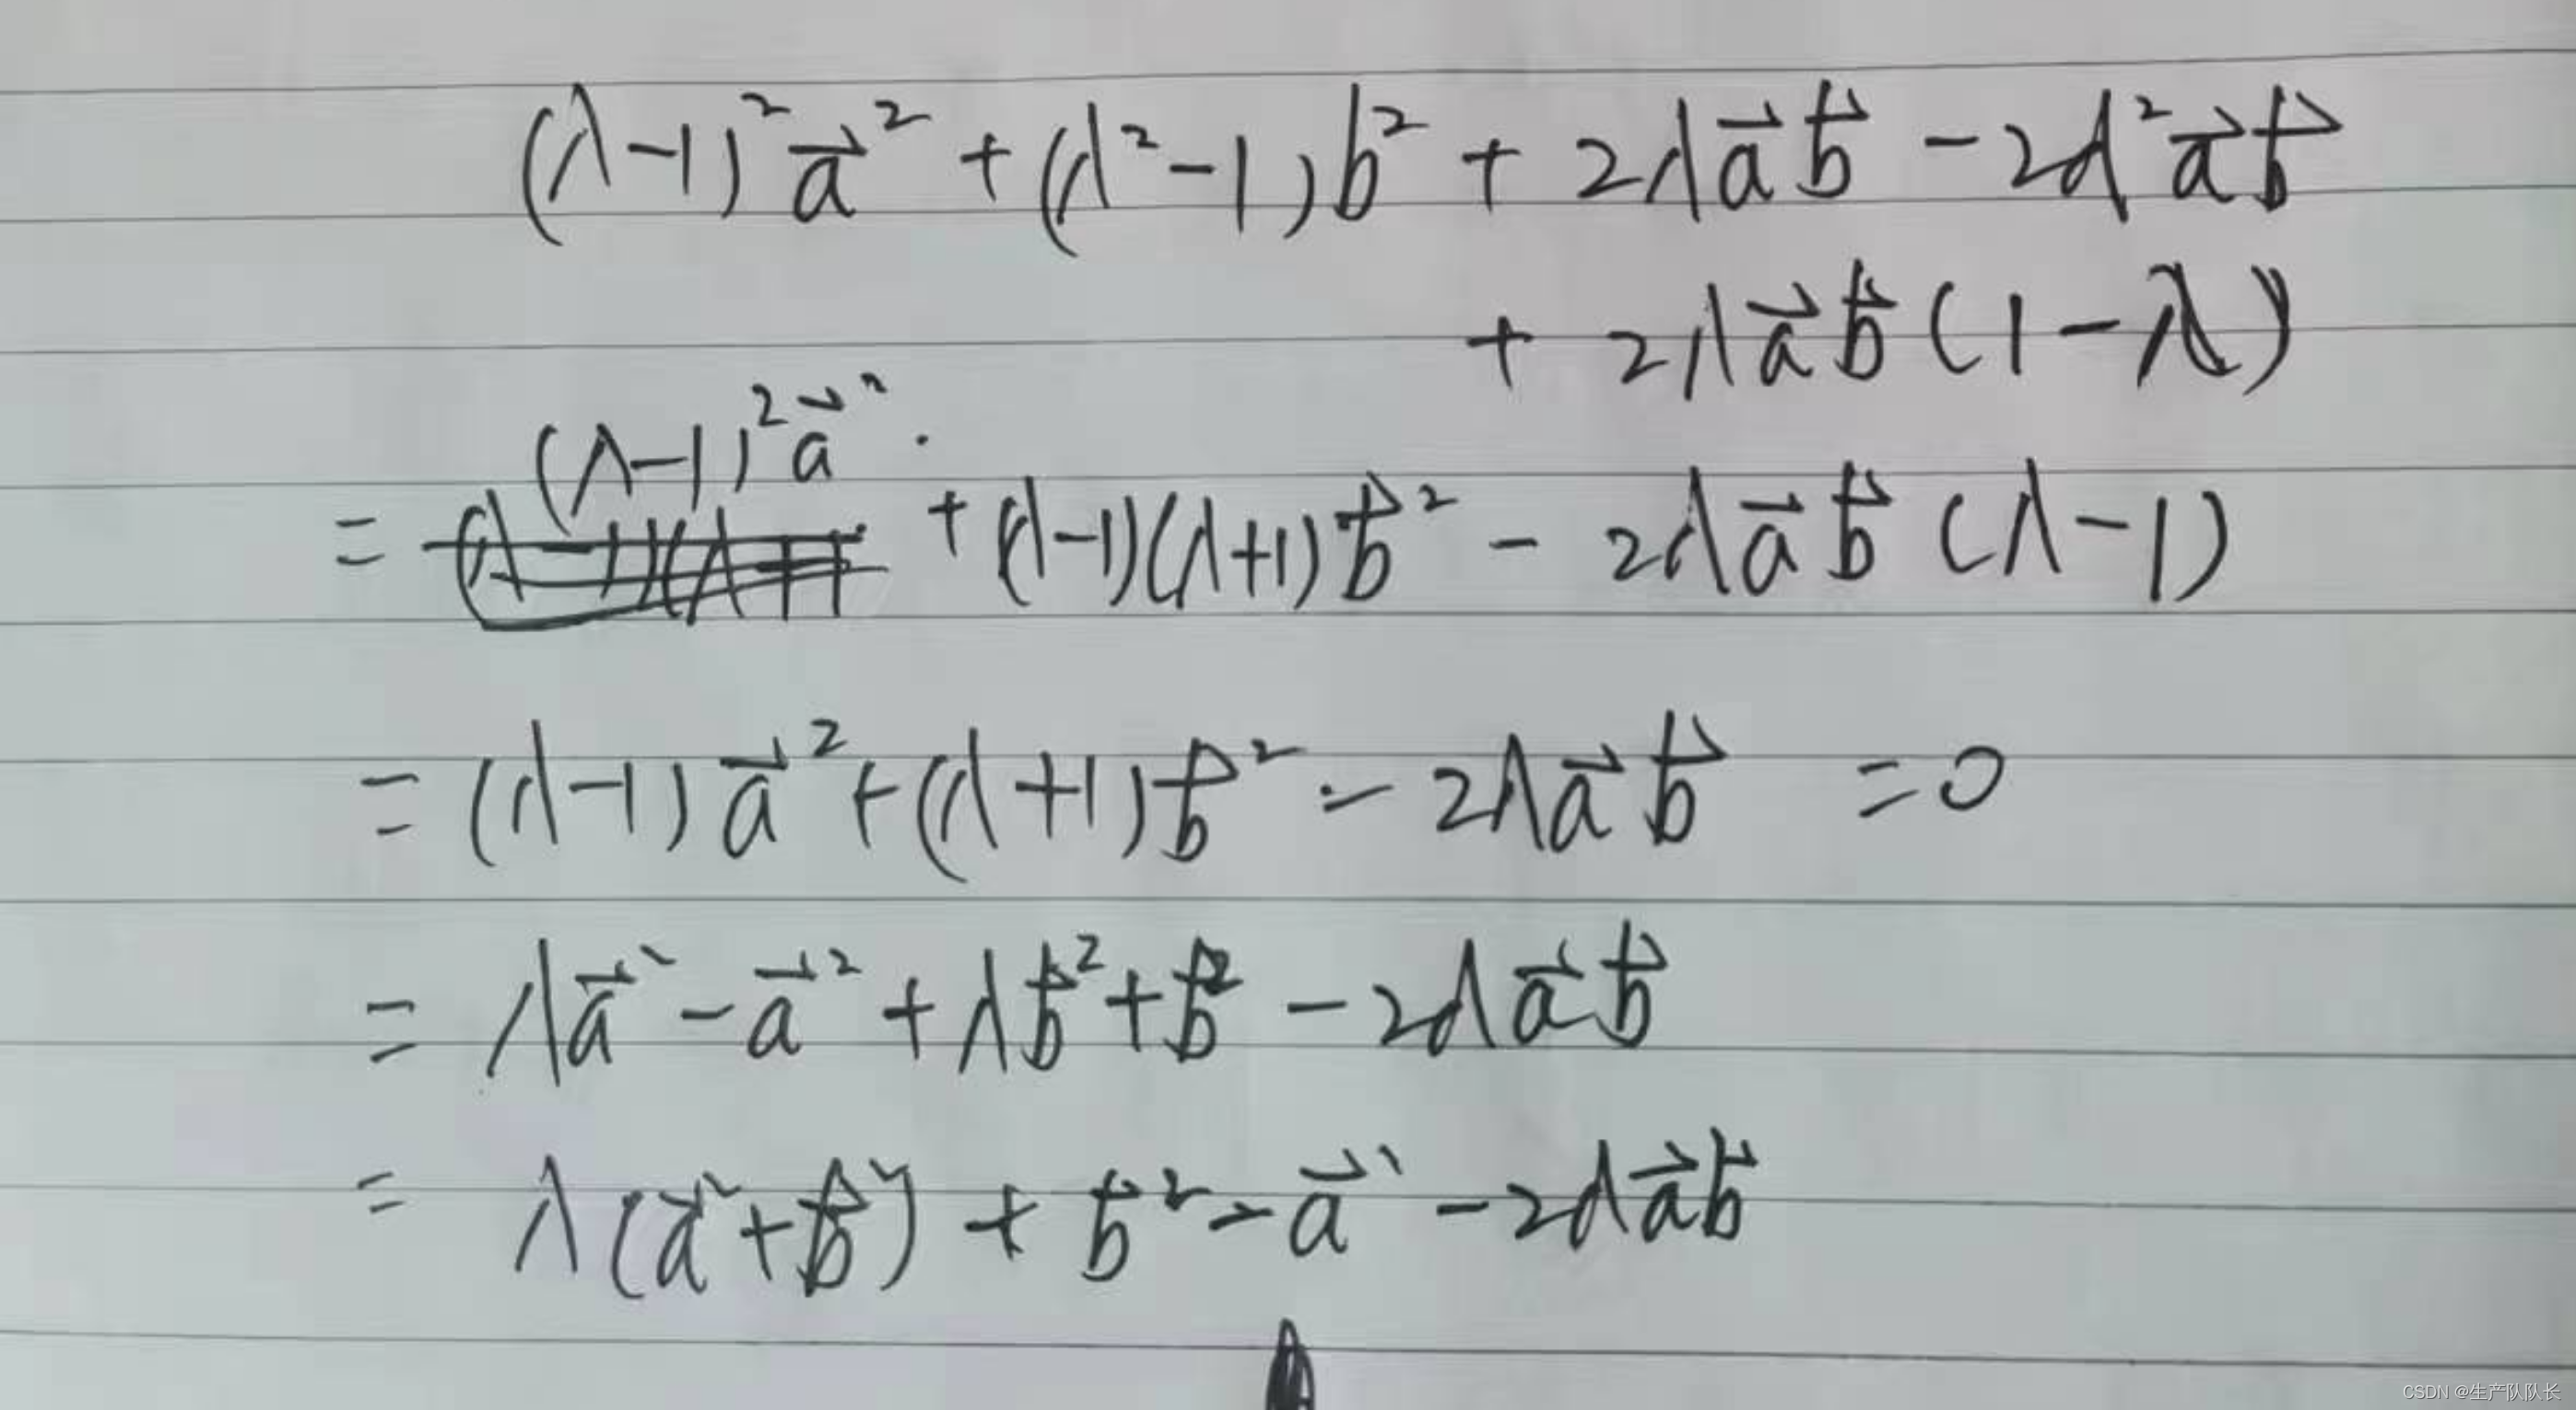 (λ-1)²a⃗² + (λ²-1)b² + 2λa⃗b⃗ - 2λ²a⃗b⃗
+ 2λa⃗b⃗(1-λ)
= (λ-1)²a⃗² + (λ-1)(λ+1)b⃗² - 2λa⃗b⃗(λ-1)
= (λ-1)a⃗² + (λ+1)b⃗² - 2λa⃗b⃗ = 0
= λa⃗² - a⃗² + λb⃗² + b⃗² - 2λa⃗b⃗
= λ(a⃗²+b⃗²) + b⃗² - a⃗² - 2λa⃗b⃗
CSDN @生产队队长